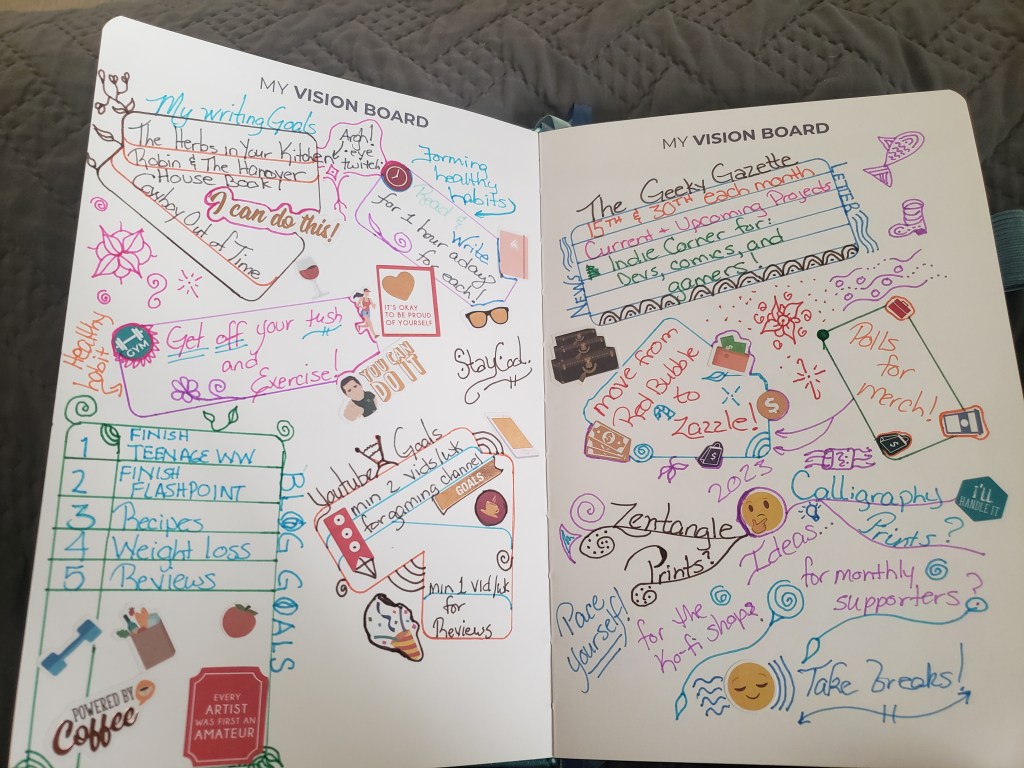 MY VISION BOARD
My writing Goals
The Herbs in Your Kitchen
Robin & The Hanover
House Book 1
Cowboy Out of Time
I can do this!
Argh!
eye
twitch
Forming
healthy
habits
Read &
Write
for 1 hour a day
for
each!
IT'S OKAY
TO BE PROUD
OF YOURSELF
Healthy
habit
GYM
Get off your tush
and
Exercise!
YOU CAN
DO IT
Stay Cool.
1 FINISH
TEENAGE WW
2 FINISH
FLASHPOINT
3 Recipes
4 Weight loss
5 Reviews
BLOG GOALS
Youtube Goals
min 2 vids/wk
for gaming channel
GOALS
min 1 vid/wk
for
Reviews
POWERED BY
Coffee
EVERY
ARTIST
WAS FIRST AN
AMATEUR
MY VISION BOARD
The Geeky Gazette
NEWS
LETTER
15TH & 30TH each month
Current + Upcoming Projects
Indie Corner for:
Devs, comics, and
gamers!
move from
Red Bubble
to
Zazzle!
Polls
for
merch!
2023
Zentangle
Prints?
Calligraphy
Prints?
i'll
HANDLE IT
Ideas:
for monthly
supporters?
for the
Ko-fi shop?
Pace
yourself!
Take Breaks!